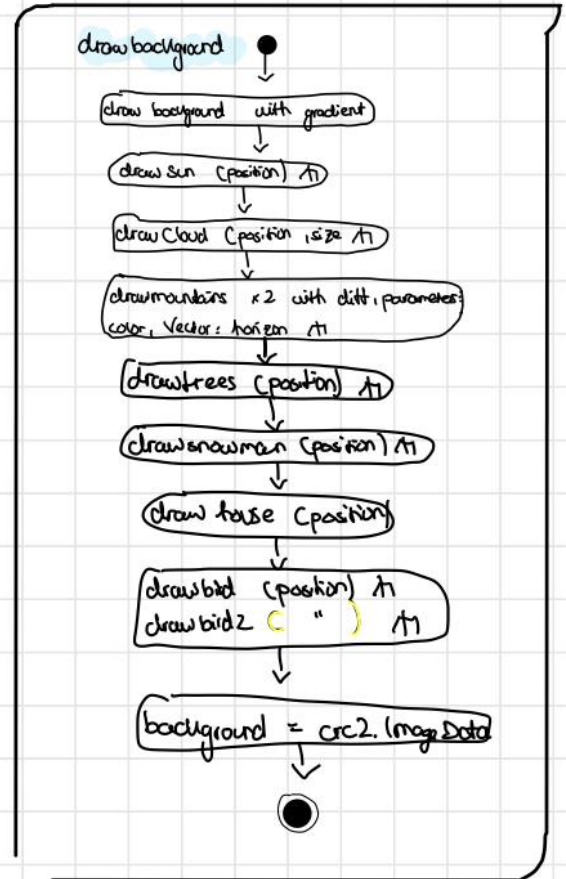 draw background
draw background with gradient
draw sun (position)
draw Cloud (position, size
drawmountains x2 with diff. parameter:
color, Vector: horizon
drawtrees (position)
drawsnowman (position)
draw house (position)
drawbird (position)
drawbird2 ( " )
background = crc2.ImageData